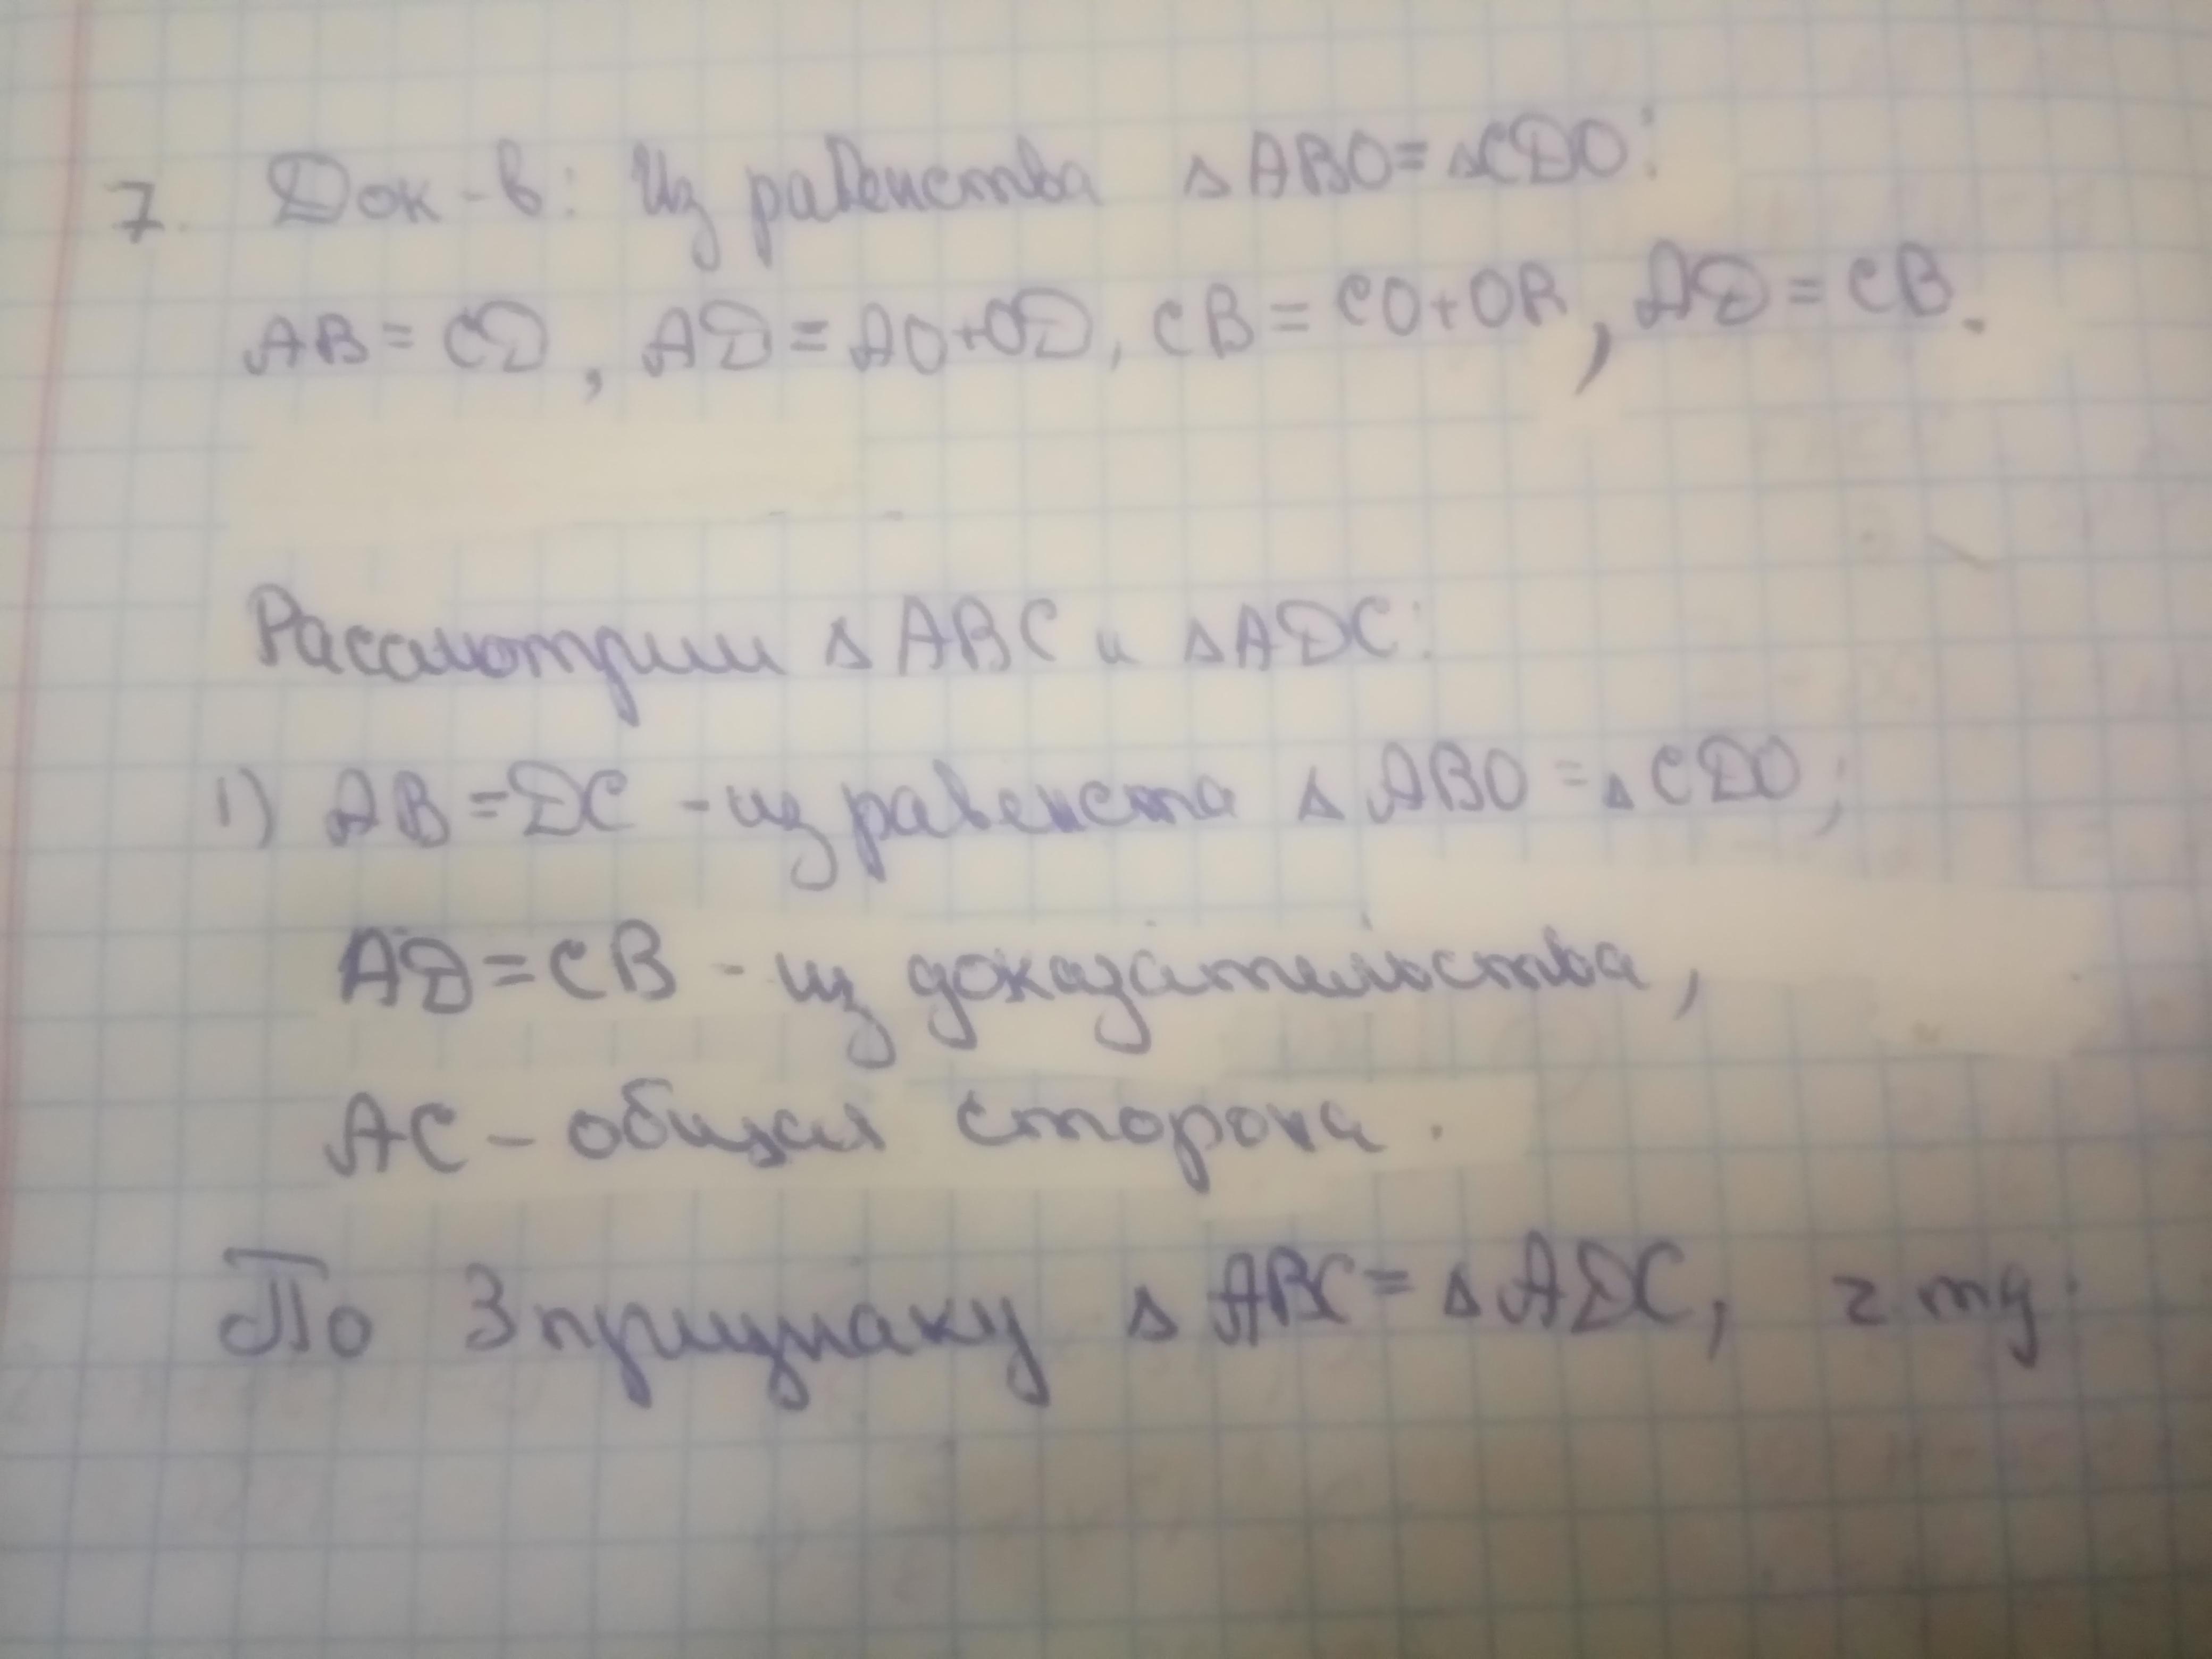 7. Док-в: Из равенства △ABO=△CDO:
AB = CD, AD = AO+OD, CB = CO+OB, AD = CB.
Рассмотрим △ABC и △ADC:
1) AB = DC - из равенста △ABO = △CDO;
AD = CB - из доказательства,
AC - общая сторона.
По 3 признаку △ABC = △ADC, ч тд.